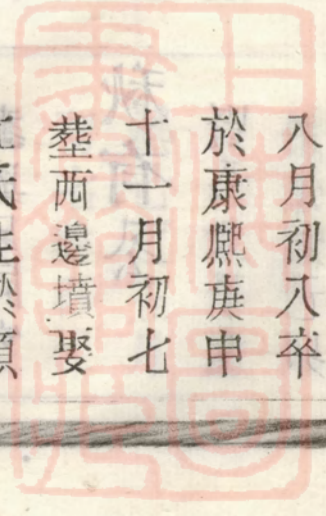 八月初八卒
於康熙庚申
十一月初七
塟西邊墳娶
氏生於順